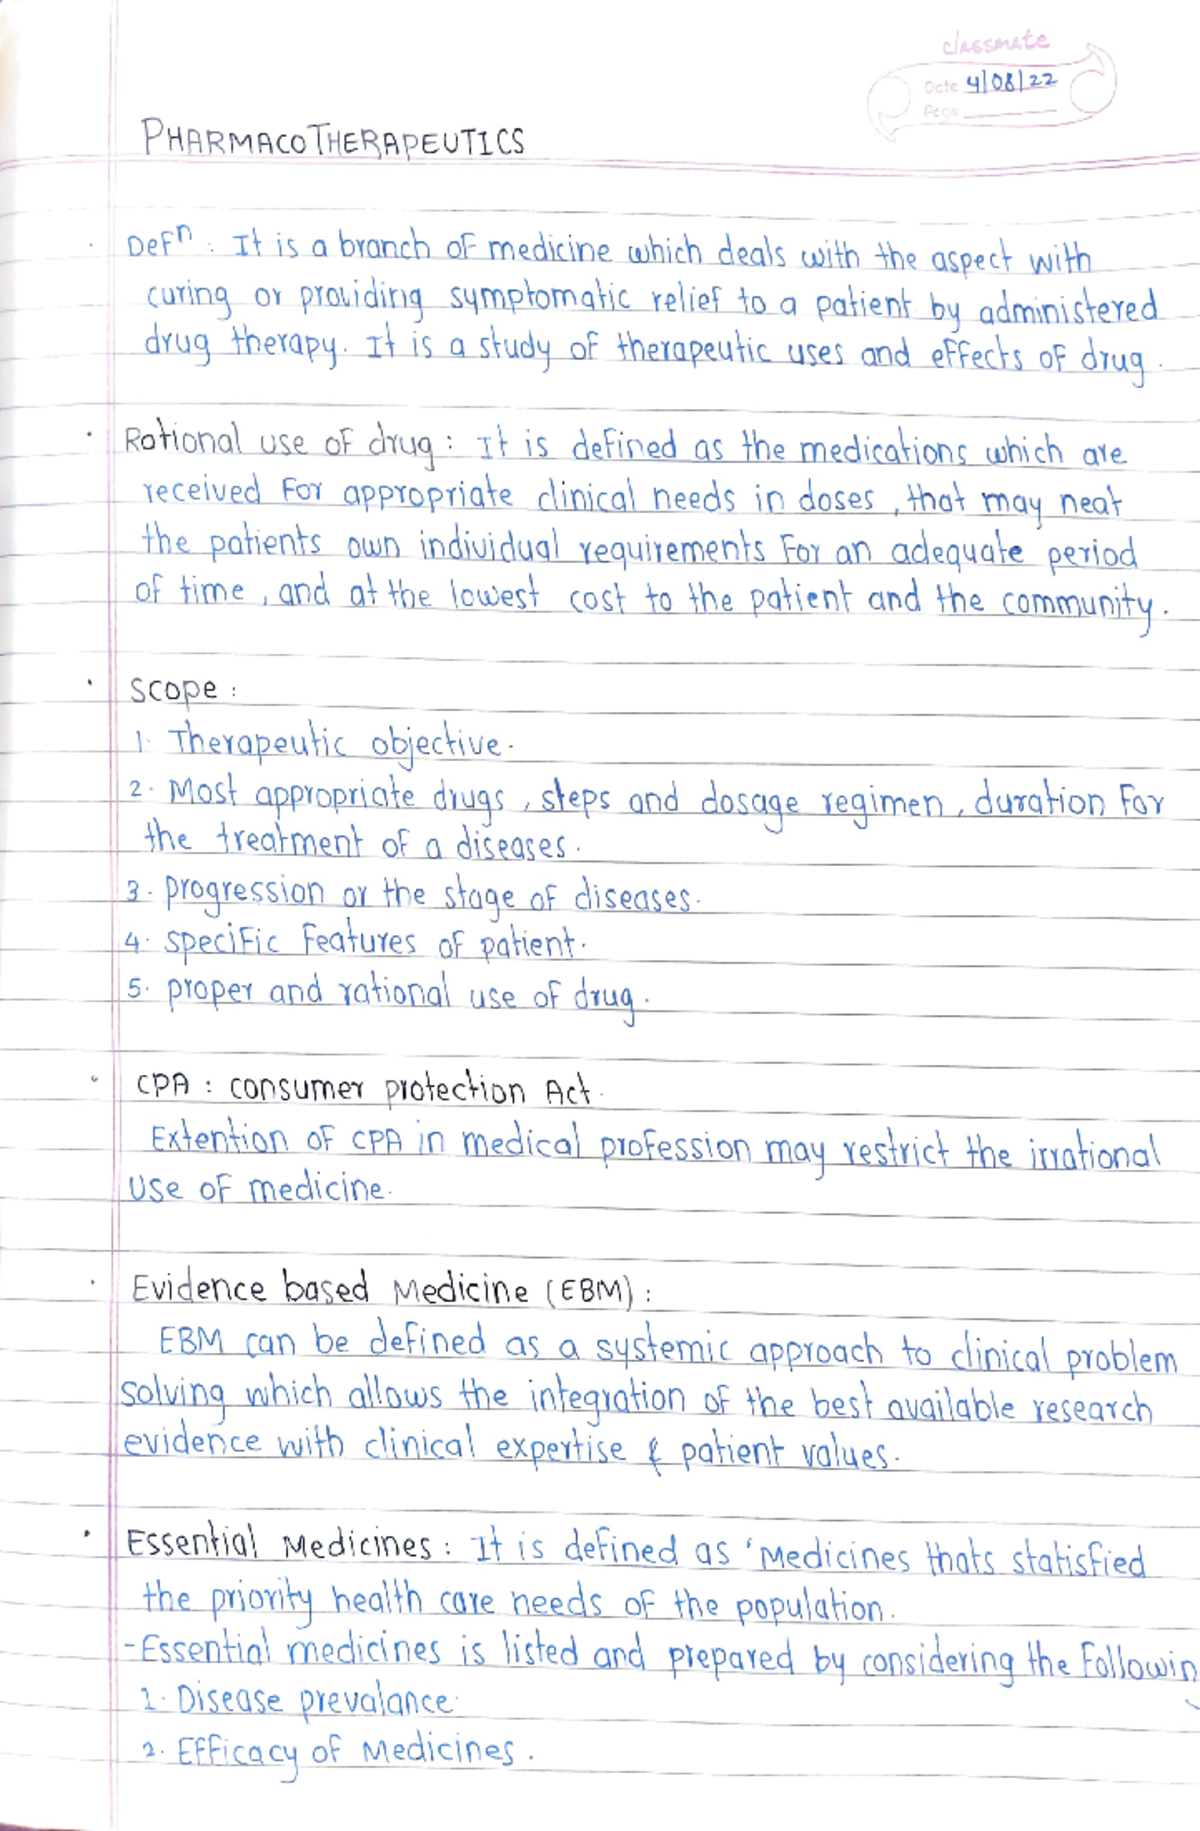 classmate
Date 4/08/22
Page
PHARMACOTHERAPEUTICS
· Defⁿ : It is a branch of medicine which deals with the aspect with
curing or providing symptomatic relief to a patient by administered
drug therapy. It is a study of therapeutic uses and effects of drug.
· Rational use of drug : It is defined as the medications which are
received for appropriate clinical needs in doses, that may neat
the patients own individual requirements for an adequate period
of time, and at the lowest cost to the patient and the community.
· Scope :
1. Therapeutic objective.
2. Most appropriate drugs, steps and dosage regimen, duration for
the treatment of a diseases.
3. progression or the stage of diseases.
4. specific features of patient.
5. proper and rational use of drug.
· CPA : consumer protection Act.
Extention of CPA in medical profession may restrict the irrational
use of medicine.
· Evidence based Medicine (EBM) :
EBM can be defined as a systemic approach to clinical problem
solving which allows the integration of the best available research
evidence with clinical expertise & patient values.
· Essential Medicines : It is defined as 'Medicines thats statisfied
the priority health care needs of the population.
- Essential medicines is listed and prepared by considering the followin
1. Disease prevalance.
2. Efficacy of Medicines.